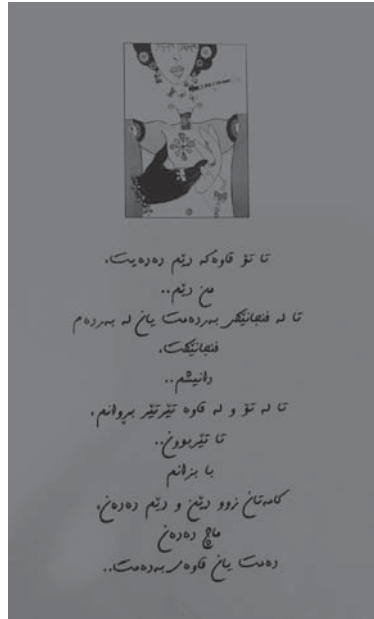 تا تۆ قاوەکە دێم دەدەیت.
من دێم..
تا لە فنجانێکی بەردەمت یان لە بەردەم
فنجانێکت.
دانیشم..
تا لە تۆ و لە قاوە تێرتێر بڕوانم.
تا تێربوون..
با بزانم
کامەتان زوو دێن و دێم دەدەن.
ماچ دەدەن
دەمت یان قاوەی بەدەمت..